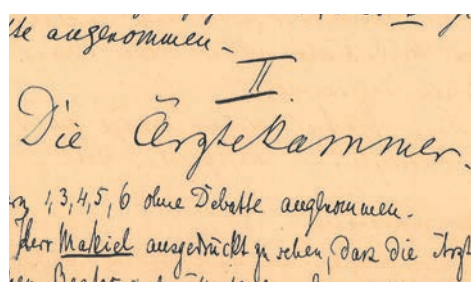 te angenommen.
II.
Die Ärztekammer.
1,3,4,5,6 ohne Debatte angenommen.
Herr Makiel ausgedrückt zu sehen, dass die Ärzt